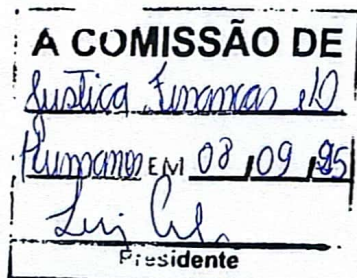 A COMISSÃO DE
Justiça Finanças e D
Humanos EM 08 / 09 / 95
Presidente